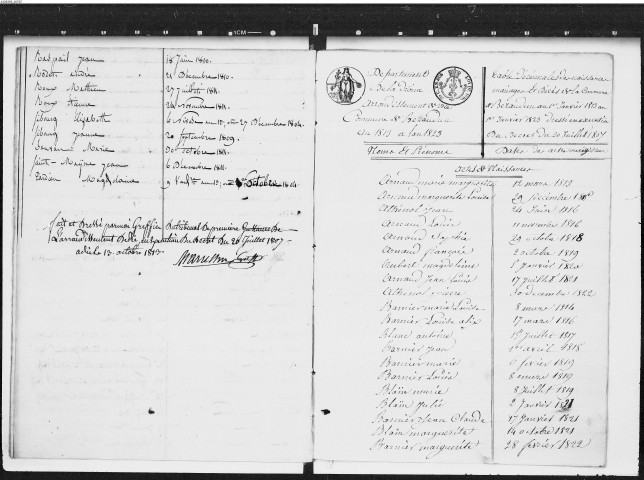 Raspail Jean 18 Juin 1810.
Rodet André 21 Decembre 1810.
Roux Mathieu 27 Juillet 1811.
Roux Etienne 26 Novembre 1811.
Elisabeth 27 Decembre 1804.
Jeanne 20 Septembre 1809.
Marie Octobre 1811.
Jean 6 Decembre 1811.
Magdelaine 9 an 13, ou 1er Octobre 1804.
Fait et Dressé par moi Greffier du tribunal de premiere
L'arrondissement de Die, en execution du decret du 20 Juillet 1807.
a Die le 13 octobre 1813.
Departement
de la Drôme
Arrondissement de Die
Commune de
de 1813 a l'an 1823
Noms et Prénoms
Table Décennale des naissances
mariages et Décès de la Commune
du 1er Janvier 1813 au
1er Janvier 1823 Dressé en execution
du Decret du 20 Juillet 1807
Dates des actes
actes de Naissances
Arnaud marie marguerite 12 mars 1813
marguerite Louise 29 décembre
Athenol Jean 24 Juin 1816
Louise 11 novembre 1816
Arnaud Sophie 29 octobre 1818
Arnaud françoise 2 octobre 1819
Aubert magdeleine 5 Janvier 1820
Arnaud Jean Louis 17 Juillet 1821
Athenol 30 decembre 1822
Barnier marie Louise 8 mars 1814
Barnier Louise 17 mars 1816
Blanc antoine 19 Juillet 1817
Barnier Jean 1er avril 1818
Barnier marie 6 fevrier 1819
Barnier Louis 8 mars 1819
Blain marie 8 Juillet 1819
Blain Julie 2 Janvier 1821
Barnier Jean Claude 17 Janvier 1821
Blain marguerite 14 octobre 1821
Barnier marguerite 28 fevrier 1822